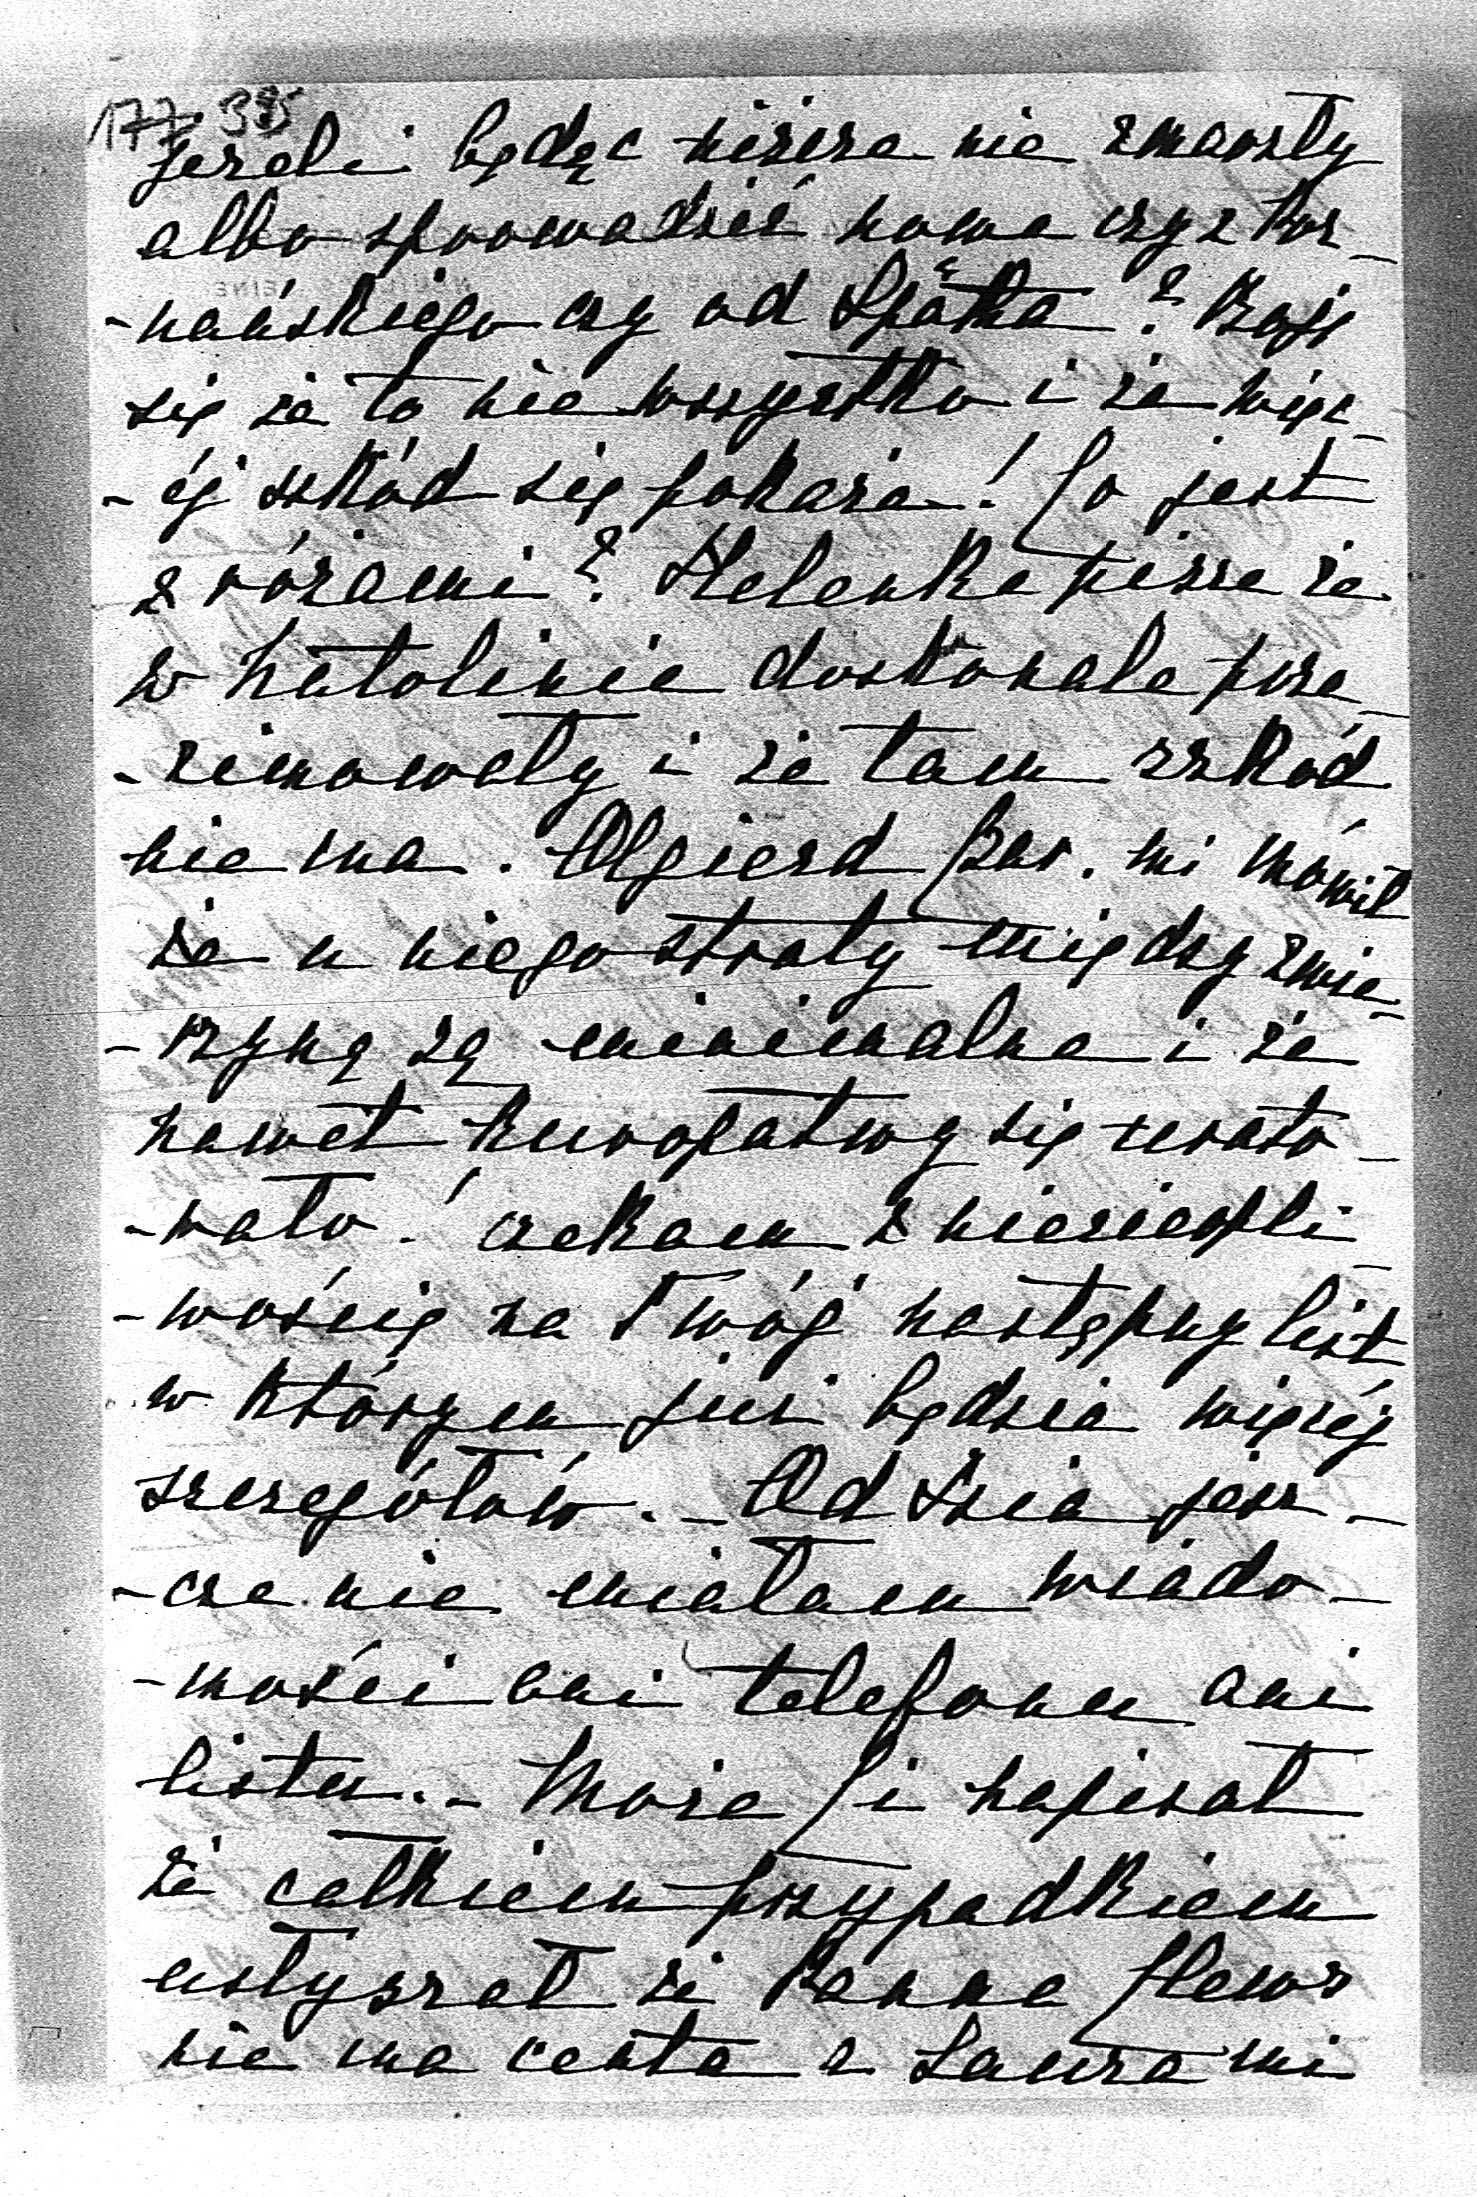 177 335
jeżeli będąc niższe nie zmarzły
albo sprowadzić nowe czy z Poz-
-nańskiego czy od Späta? Boję
się że to nie wszystko i że więc-
-éj szkód się pokaże! Co jest
z różami? Helenka pisze że
w Natolinie doskonale prze-
-zimowały i że tam szkód
nie ma. Olgierd Czar. mi mówił
że u niego straty między zwie-
-rzyną są minimalne i że
nawet kuropatwy się urato-
-wało! czekam z niecierpli-
-wością na Twój następny list
w którym już będzie więcéj
szczegółów. - Od Izia jesz-
-cze nie miałam wiado-
-mości ani telefonu ani
listu. - Może Ci napisał
że całkiem przypadkiem
usłyszał że Panna
nie ma centa a Laura mi